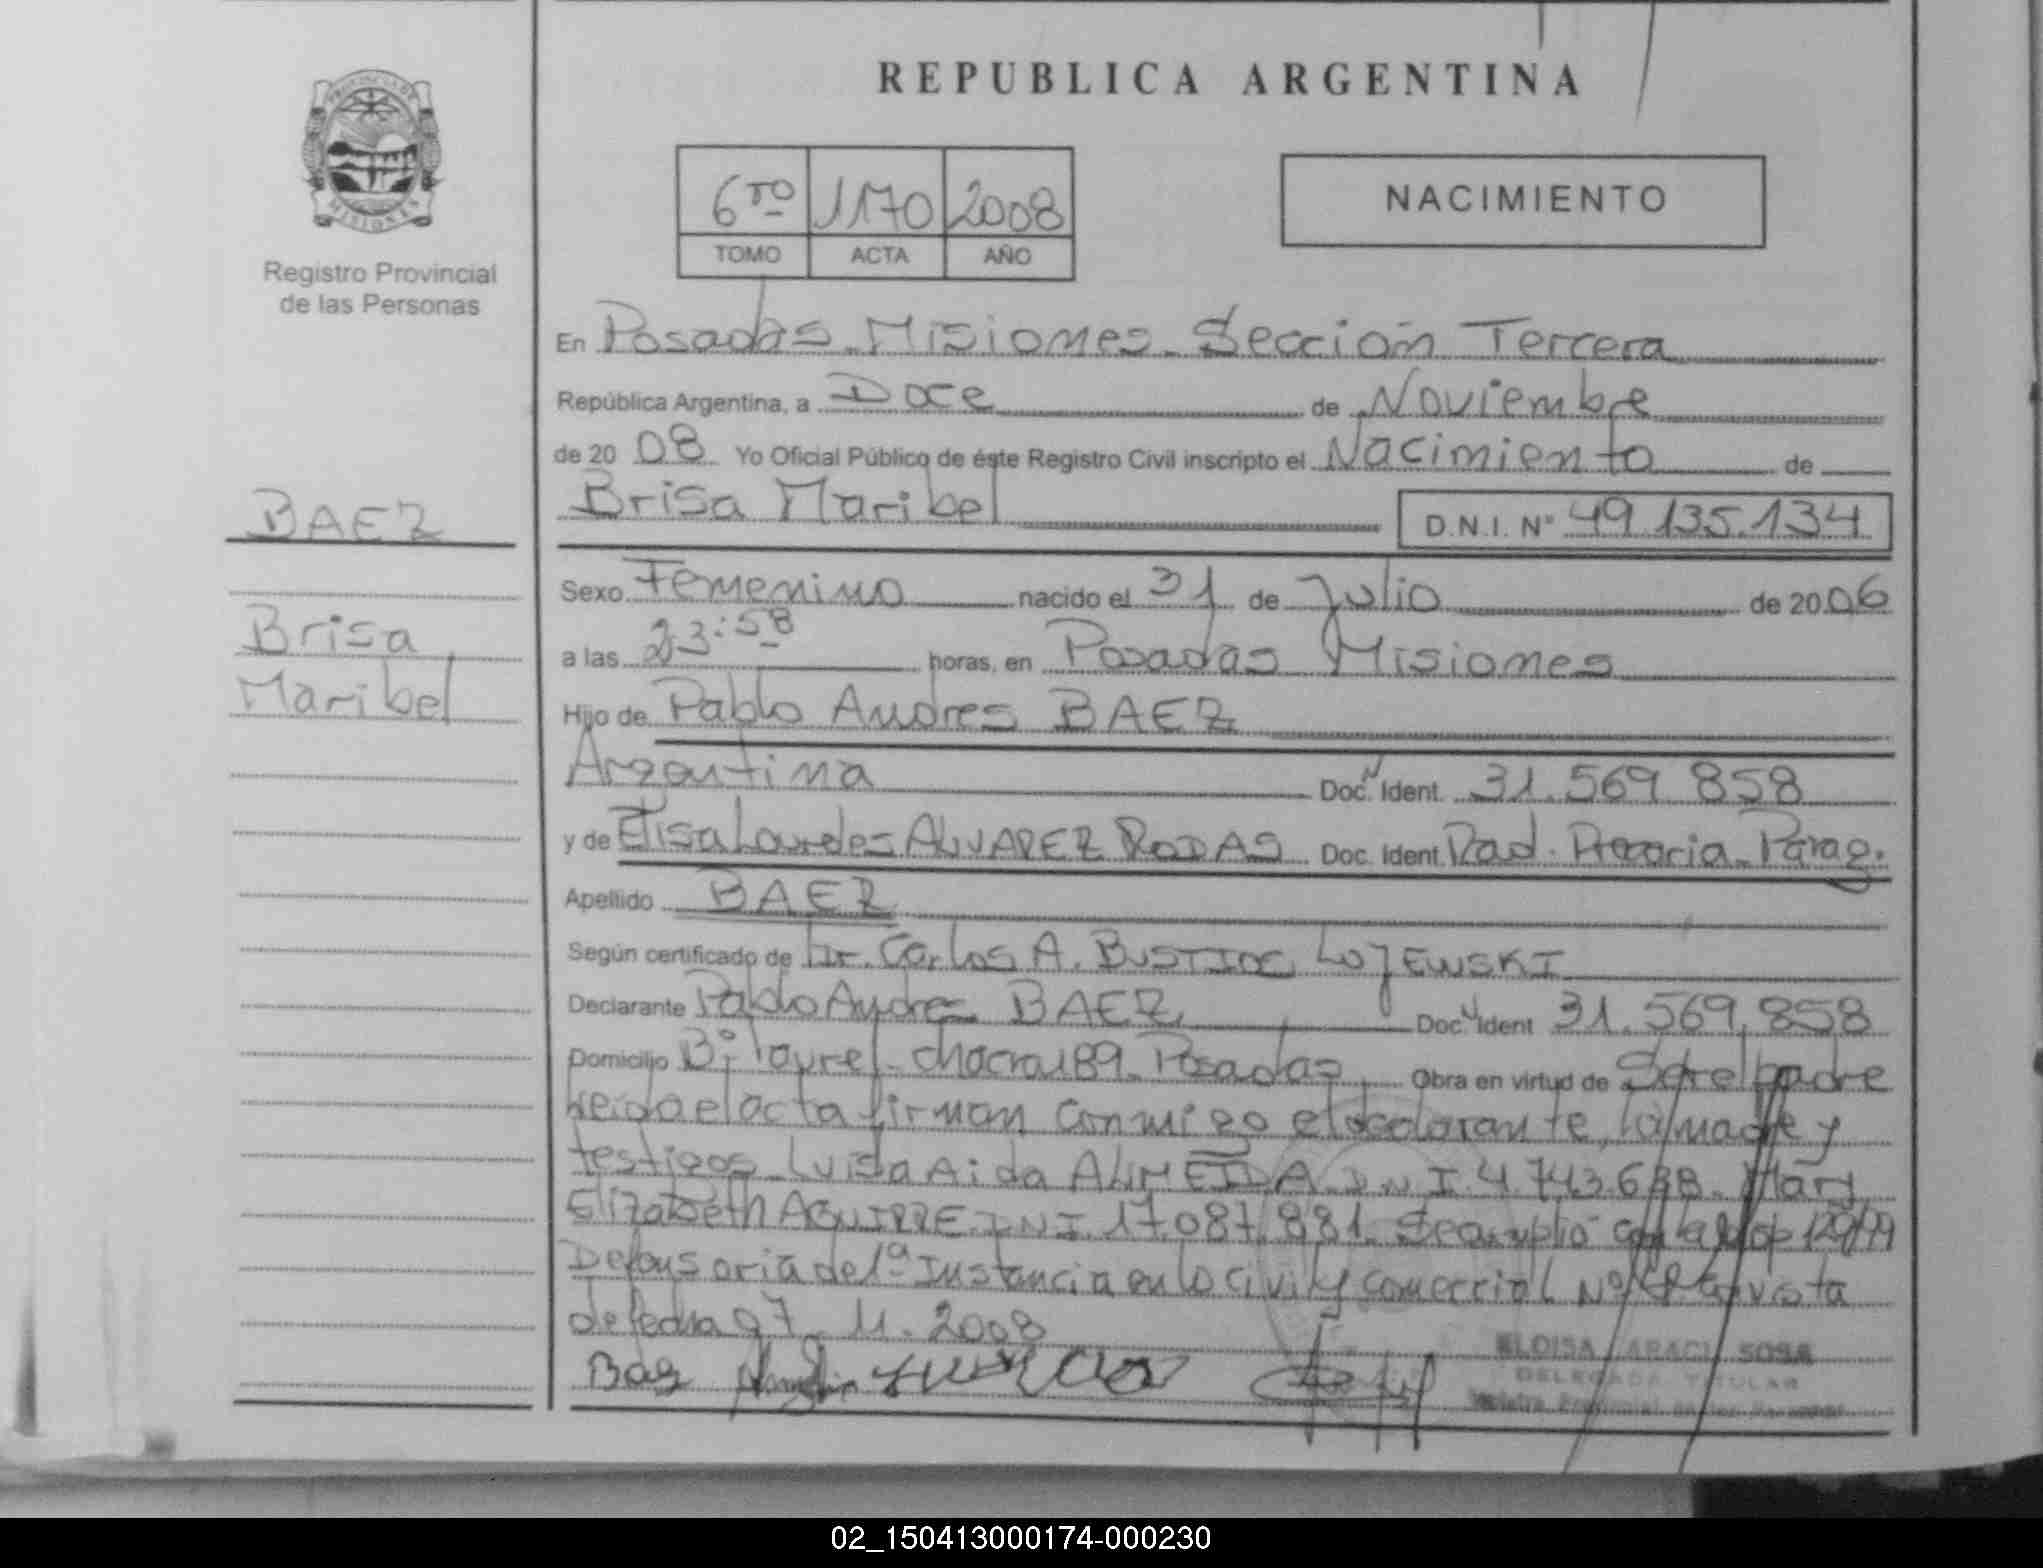 REPUBLICA ARGENTINA
PROVINCIA DE MISIONES
Registro Provincial
de las Personas
6TO 1170 2008
TOMO ACTA AÑO
NACIMIENTO
En Posadas Misiones Sección Tercera
República Argentina, a Doce de Noviembre
de 2008 Yo Oficial Público de éste Registro Civil inscripto el Nacimiento de
Brisa Maribel D.N.I. N° 49.135.134
BAEZ
Brisa
Maribel
Sexo Femenino nacido el 31 de Julio de 2006
a las 23:58 horas, en Posadas Misiones
Hijo de Pablo Andres BAEZ
Argentina Doc. Ident. 31.569.858
y de Elisa Lourdes ALVAREZ RODAS Doc. Ident. Parag.
Apellido BAEZ
Según certificado de Dr. Carlos A. LOJEWSKI
Declarante Pablo Andres BAEZ Doc. Ident 31.569.858
Domicilio B° Laurel chacra 189 Posadas Obra en virtud de Ser el padre
Leida el acta firman conmigo el declarante, la madre y
testigos Luisa Aida ALMEIDA D.N.I. 4.743.638. Mary
Elizabeth AGUIRRE D.N.I. 17.087.881. Se cumplió con la
Defensoria de 1ª Instancia en lo Civil y Comercial N° vista
de fecha 07.11.2008
Baez
ELOISA ARACI SOSA
DELEGADA TITULAR
Registro Provincial de las Personas
02_150413000174-000230